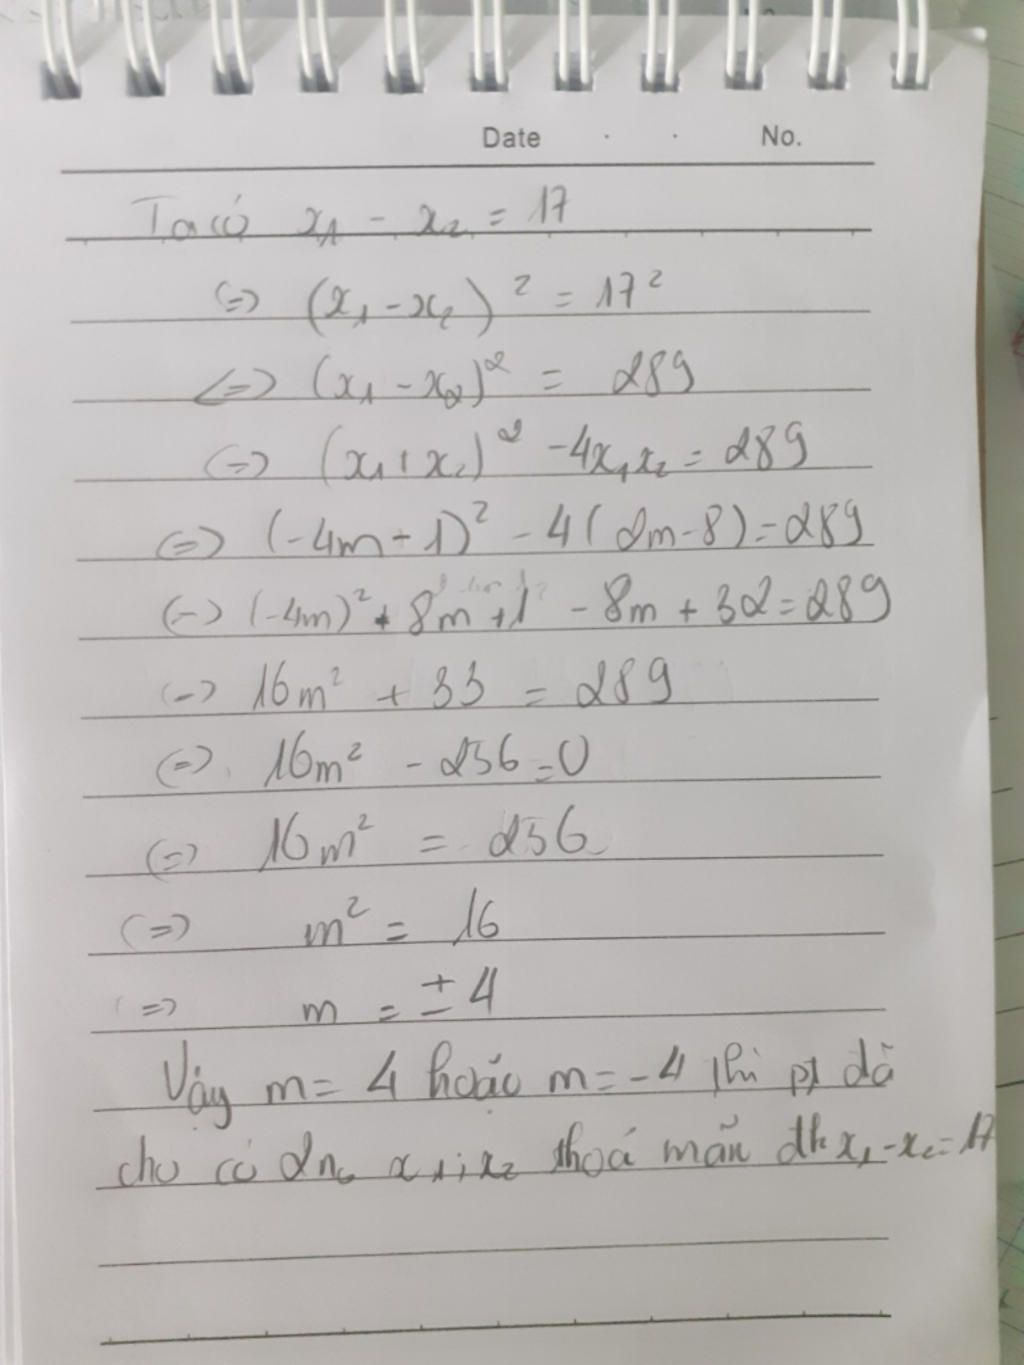 Date . . No.
Ta có x₁ - x₂ = 17
(=) (x₁ - x₂)² = 17²
<=> (x₁ - x₂)² = 289
(=) (x₁ + x₂)² - 4x₁x₂ = 289
(=) (-4m + 1)² - 4(2m - 8) = 289
(-) (-4m)² + 8m + 1² - 8m + 32 = 289
(-) 16m² + 33 = 289
(=) 16m² - 256 = 0
(=) 16m² = 256
(=) m² = 16
(=) m = ± 4
Vậy m = 4 hoặc m = -4 thì pt đã
cho có 2 n₀ x₁; x₂ thoả mãn đk x₁ - x₂ = 17